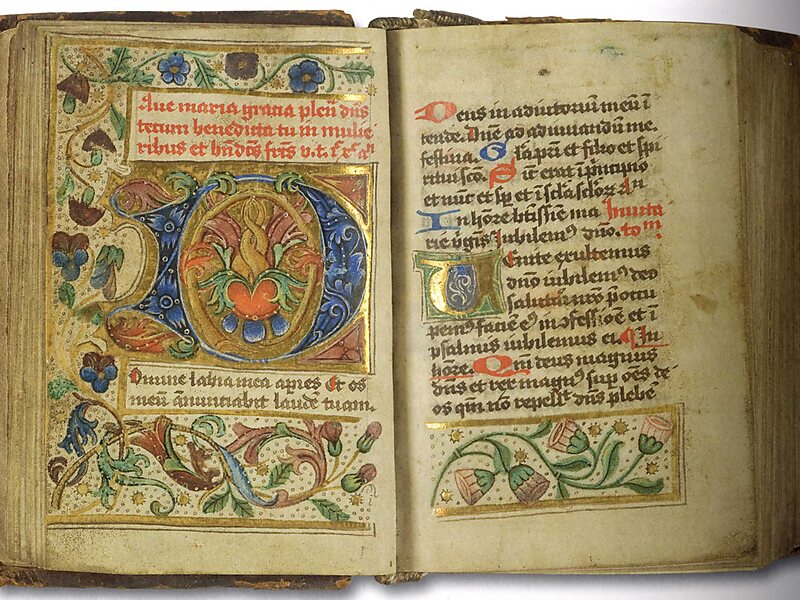 Aue maria gratia plen dns
tecum benedicta tu in mulie
ribus et bndcs frcs v. t.
D
omine labia mea apies Et os
meū annuntiabit laudē tuam.
Deus in adiutoriū meū ī
tende. Dne ad adiuuandū me
festina. Gla pri et filio et spi
ritui sco. Sicut erat ī principio
et nūc et sp et ī scla sclor An
In honore btissie ma Inuita
rie virgīs Iubilemus dno. torm.
Uenite exultemus
dno iubilemus deo
salutari nro poccu
pemus faciē ei in ofessione et ī
psalmis iubilemus ei. In
hōre. Qm deus magnus
dns et rex magnus sup oēs de
os qm nō repellet dns plebē